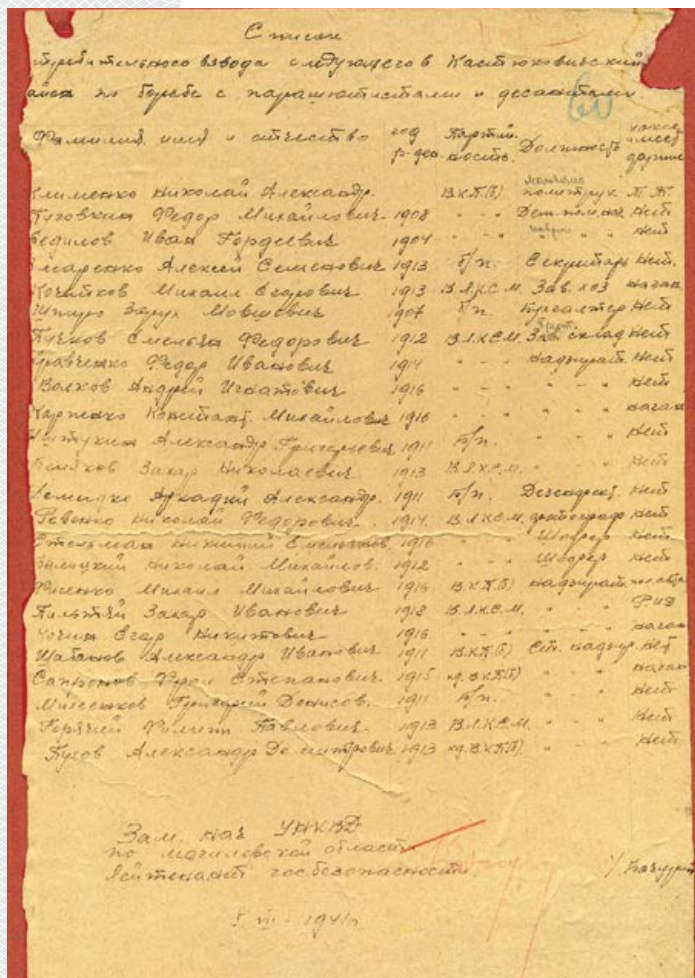 Список
требительного взвода следующего в Костюковичский
район по борьбе с парашютистами и десантами
60
Фамилия имя и отчество год р-дея. Партий. ность. Должность какое имеет оружие
Клименко Николай Александр. В.К.П.(б) политрук Т.Т.
Пуговкин Федор Михайлович 1908 " - " нет
Иван Гордеевич 1904 " - " " " нет
Алексей Семенович 1913 б/п. Секретарь нет.
Кочитков Михаил Егорович 1913 В.Л.К.С.М. Зав. хоз наган
Шпиро Мовшович 1907 б/п. бухгалтер нет
Пучков Емельян Федорович 1912 В.Л.К.С.М. Зав. склад нет
Кравченко Федор Иванович 1914 " - " надзират. нет
Волков Андрей Игнатович 1916 " - " " нет
Карпенко Констант. Михайлович 1916 " - " " наган
Александр Григорьевич 1911 б/п. " " нет
Захар Николаевич 1913 В.Л.К.С.М. " " нет
Аркадий Александр. 1911 б/п. Дезинфект. нет
Ревенко Николай Федорович. 1914. В.Л.К.С.М. фотограф нет
1916 " - " Шофер нет
Николай Михайлов. 1912 " - " Шофер нет
Михаил Михайлович 1916 В.К.П.(б) надзират.
Захар Иванович 1912 В.Л.К.С.М. " "
Кочин Егор Никитович 1916 " - " " наган
Шабанов Александр Иванович 1911 В.К.П.(б) Ст. надзир. нет
Сапронов Фрол Степанович 1915 кд. В.К.П(б) " " наган
Григорий Денисов. 1911 б/п. " " нет
Горячий Филипп Павлович 1913 В.Л.К.С.М. " " нет
Пугов Александр Дмитрович 1913 кд. В.К.П(б). " " нет
Зам. нач УНКВД
по могилевской области
лейтенант госбезопасности.
VII - 1941г